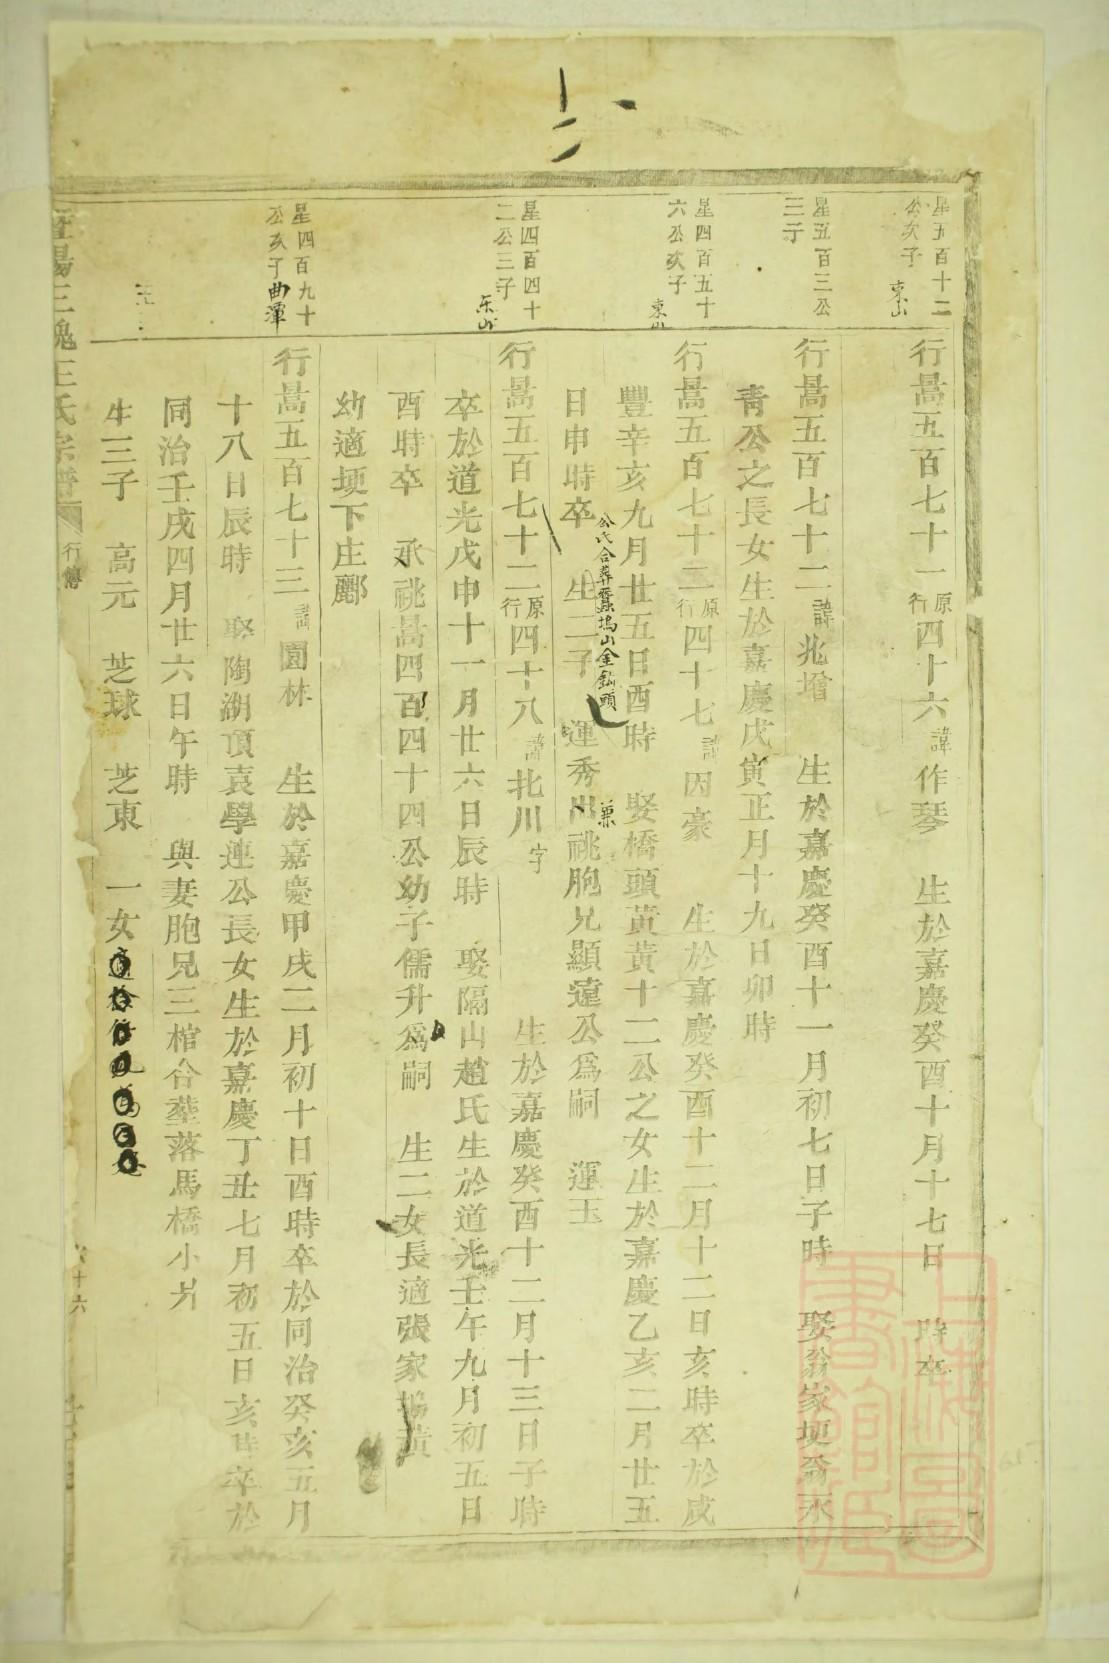 星五百十二
公次子 東山
行暠五百七十一 原行 四十六 諱 作琴 生於嘉慶癸酉十月十七日 時卒
星五百三公
三子
行暠五百七十二 諱 兆增 生於嘉慶癸酉十一月初七日子時 娶翁家埂翁永
青公之長女生於嘉慶戊寅正月十九日卯時
星四百五十
六公次子 東山
行暠五百七十二 原行 四十七 諱 因豪 生於嘉慶癸酉十二月十二日亥時卒於咸
豐辛亥九月廿五日酉時 娶橋頭黃黃十二公之女生於嘉慶乙亥二月廿五
公氏合葬蠶塢山金釵頭
日申時卒 生二子 運秀出祧胞兄顯達公為嗣 運玉
兼
星四百四十
二公三子 東山
行暠五百七十二 原行 四十八 諱 北川 字 生於嘉慶癸酉十二月十三日子時
卒於道光戊申十一月廿六日辰時 娶隔山趙氏生於道光壬午九月初五日
酉時卒 承祧暠四百四十四公幼子儒升為嗣 生二女長適張家塢黃
幼適埂下庄酈
星四百九十
公次子 曲潭
行暠五百七十三 諱 園林 生於嘉慶甲戌二月初十日酉時卒於同治癸亥五月
十八日辰時 娶陶湖頂袁學連公長女生於嘉慶丁丑七月初五日亥時卒於
同治壬戌四月廿六日午時 與妻胞兄三棺合塟落馬橋小
生三子 高元 芝球 芝東 一女適
暨陽三槐王氏宗譜 行傳 六十六
上海圖書館藏